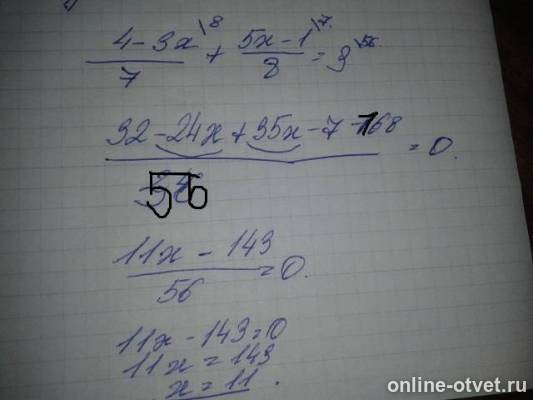 4-3x\8 / 7 + 5x-1\7 / 8 = 3\56
32-24x+35x-7-168 / 56 = 0.
11x-143 / 56 = 0.
11x-143=0
11x=143
x=11.
online-otvet.ru